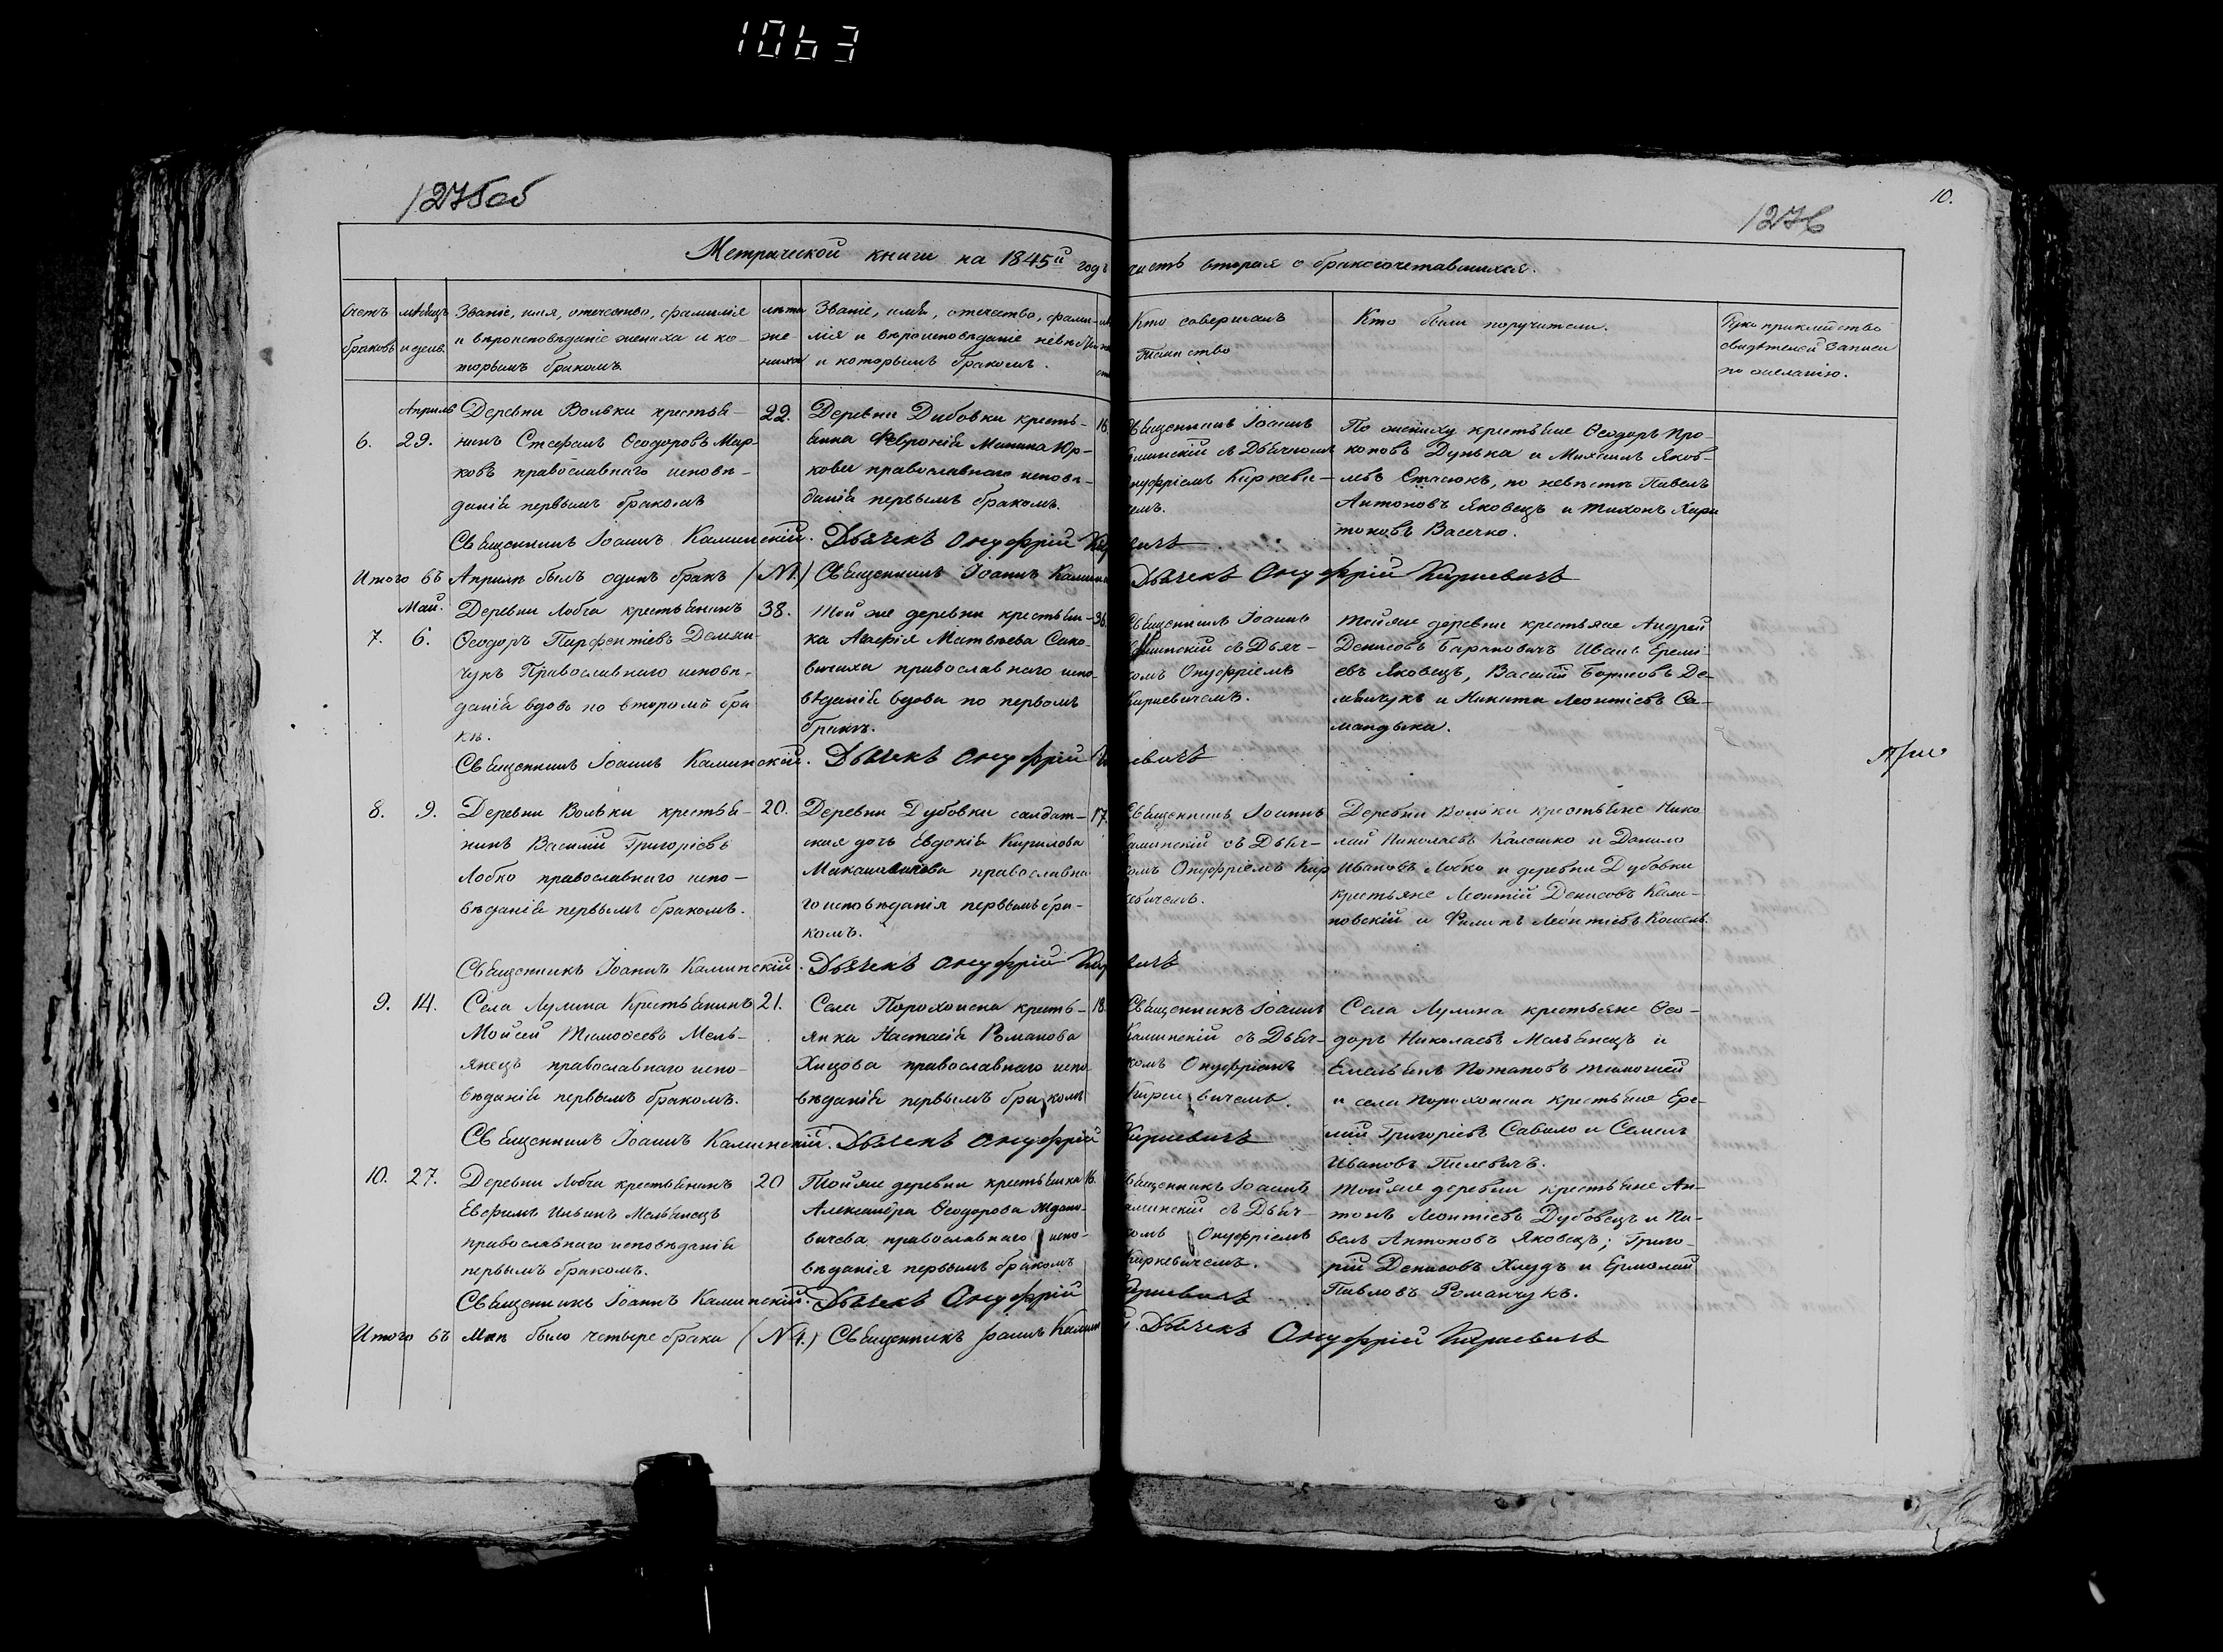 1063
1275об
1276
10.
Метрической книги на 1845й годъ часть вторая о бракосочетавшихся.
Счетъ браковъ
мѣсяцъ и день.
Званіе, имя, отечество, фамилія
и вѣроисповѣданіе жениха и ко-
торымъ бракомъ
лѣта же-
ниха
Званіе, имя, отечество, фами-
лія и вѣроисповѣданіе невѣсты
и которымъ бракомъ.
Кто совершалъ
Таинство
Кто были поручители.
Рукоприкладство
свидѣтелей записи
по желанію.
Апрель
6. 29.
Деревни Вольки крестья-
нинъ Стефанъ Ѳеодоровъ Мар-
ковъ православнаго исповѣ-
данія первымъ бракомъ
22.
Деревни Дубовки кресть-
янка Февронія Минина Юр-
кова православнаго исповѣ-
данія первымъ бракомъ.
16.
Священникъ Іоаннъ
Каминскій съ Дьячкомъ
Онуфріемъ Киркеви-
чемъ.
По жениху крестьяне Ѳеодоръ Про-
коповъ Дунька и Михаилъ Яков-
левъ Стасюкъ, по невѣстѣ Павелъ
Антоновъ Яковецъ и Тихонъ Хари
тоновъ Васечко.
Священникъ Іоаннъ Каминскій. Дьячекъ Онуфрій Киркевичъ
Итого въ Апрѣлѣ былъ одинъ бракъ (N 1.) Священникъ Іоаннъ Камин Дьячекъ Онуфрій Киркевичъ
Май.
7. 6.
Деревни Лобча крестьянинъ
Ѳеодоръ Парфентіевъ Демян-
чукъ Православнаго исповѣ-
данія вдовъ по второмъ бра
кѣ.
38.
Той же деревни крестьян-
ка Агафія Матвѣева Сако-
вичиха православнаго испо-
вѣданія вдова по первомъ
бракѣ.
36.
Священникъ Іоаннъ
Каминскій съ Дьяч-
комъ Онуфріемъ
Киркевичемъ.
Тойже деревни крестьяне Андрей
Денисовъ Барановичъ Иванъ Ереми
евъ Яковецъ, Василій Борисовъ Де-
мянчукъ и Никита Леонтіевъ Са-
мандыка.
Священникъ Іоаннъ Каминскій. Дьячекъ Онуфрій Киркевичъ
8. 9.
Деревни Вольки крестья-
нинъ Василій Григоріевъ
Лобко православнаго испо-
вѣданія первымъ бракомъ.
20.
Деревни Дубовки салдат-
ская дочь Евдокія Кирилова
православна
го исповѣданія первымъ бра-
комъ.
17.
Священникъ Іоаннъ
Каминскій съ Дьяч-
комъ Онуфріемъ Кир
кевичемъ.
Деревни Вольки крестьяне Нико
лай Николаевъ Калешко и Данило
Ивановъ Лобко и деревни Дубовки
крестьяне Леонтій Денисовъ Кали-
новскій и Филипъ Леонтіевъ
Священникъ Іоаннъ Каминскій. Дьячекъ Онуфрій Киркевичъ
9. 14.
Села Лулина Крестьянинъ
Мойсей Тимоѳеевъ Мель-
янецъ православнаго испо-
вѣданія первымъ бракомъ.
21.
Села Порохонска кресть-
янка Настасія Романова
Хицова православнаго испо
вѣданія первымъ бракомъ
18.
Священникъ Іоаннъ
Каминскій съ Дьяч-
комъ Онуфріемъ
Киркевичемъ.
Села Лулина крестьяне Ѳео-
доръ Николаевъ Мельянецъ и
Емельянъ Потаповъ Тимошей
и села Порохонска крестьяне Ере-
мій Григоріевъ Савило и Семенъ
Ивановъ Пилевичъ.
Священникъ Іоаннъ Каминскій. Дьячекъ Онуфрій Киркевичъ
10. 27.
Деревни Лобча крестьянинъ
Евфимъ Ильинъ Мельянецъ
православнаго исповѣданія
первымъ бракомъ.
20
Тойже деревни крестьянка
Александра Ѳеодорова Ждано-
вичева православнаго испо-
вѣданія первымъ бракомъ
16.
Священникъ Іоаннъ
Каминскій съ Дьяч-
комъ Онуфріемъ
Киркевичемъ.
Тойже деревни крестьяне Ан-
тонъ Леонтіевъ Дубовецъ и Па-
велъ Антоновъ Яковецъ; Григо-
рій Денисовъ Хлудъ и Ермолай
Павловъ Романчукъ.
Священникъ Іоаннъ Каминскій. Дьячекъ Онуфрій Киркевичъ
Итого въ Маѣ было четыре брака (N 4.) Священникъ Іоаннъ Камин Дьячекъ Онуфрій Киркевичъ